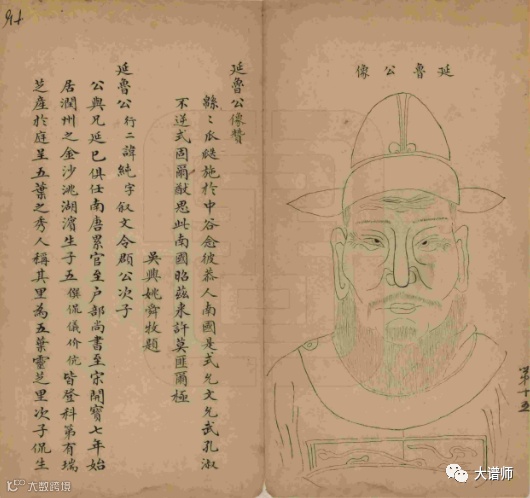 延魯公像
延魯公像贊
緜〻瓜瓞施於中谷愈彼恭人南國是式允文允武孔淑
不逆式固爾猷思此南國昭茲來許莫匪爾極
吳興姚舜牧題
延魯公行二諱純字叙文令頵公次子
公與兄延巳俱任南唐累官至户部尚書至宋開寶七年始
居潤州之金沙洮湖濱生子五僎侃儀价伉皆登科第有瑞
芝産於庭呈五葉之秀人稱其里為五葉靈芝里次子侃生
第十五
大谱师
大数跨境